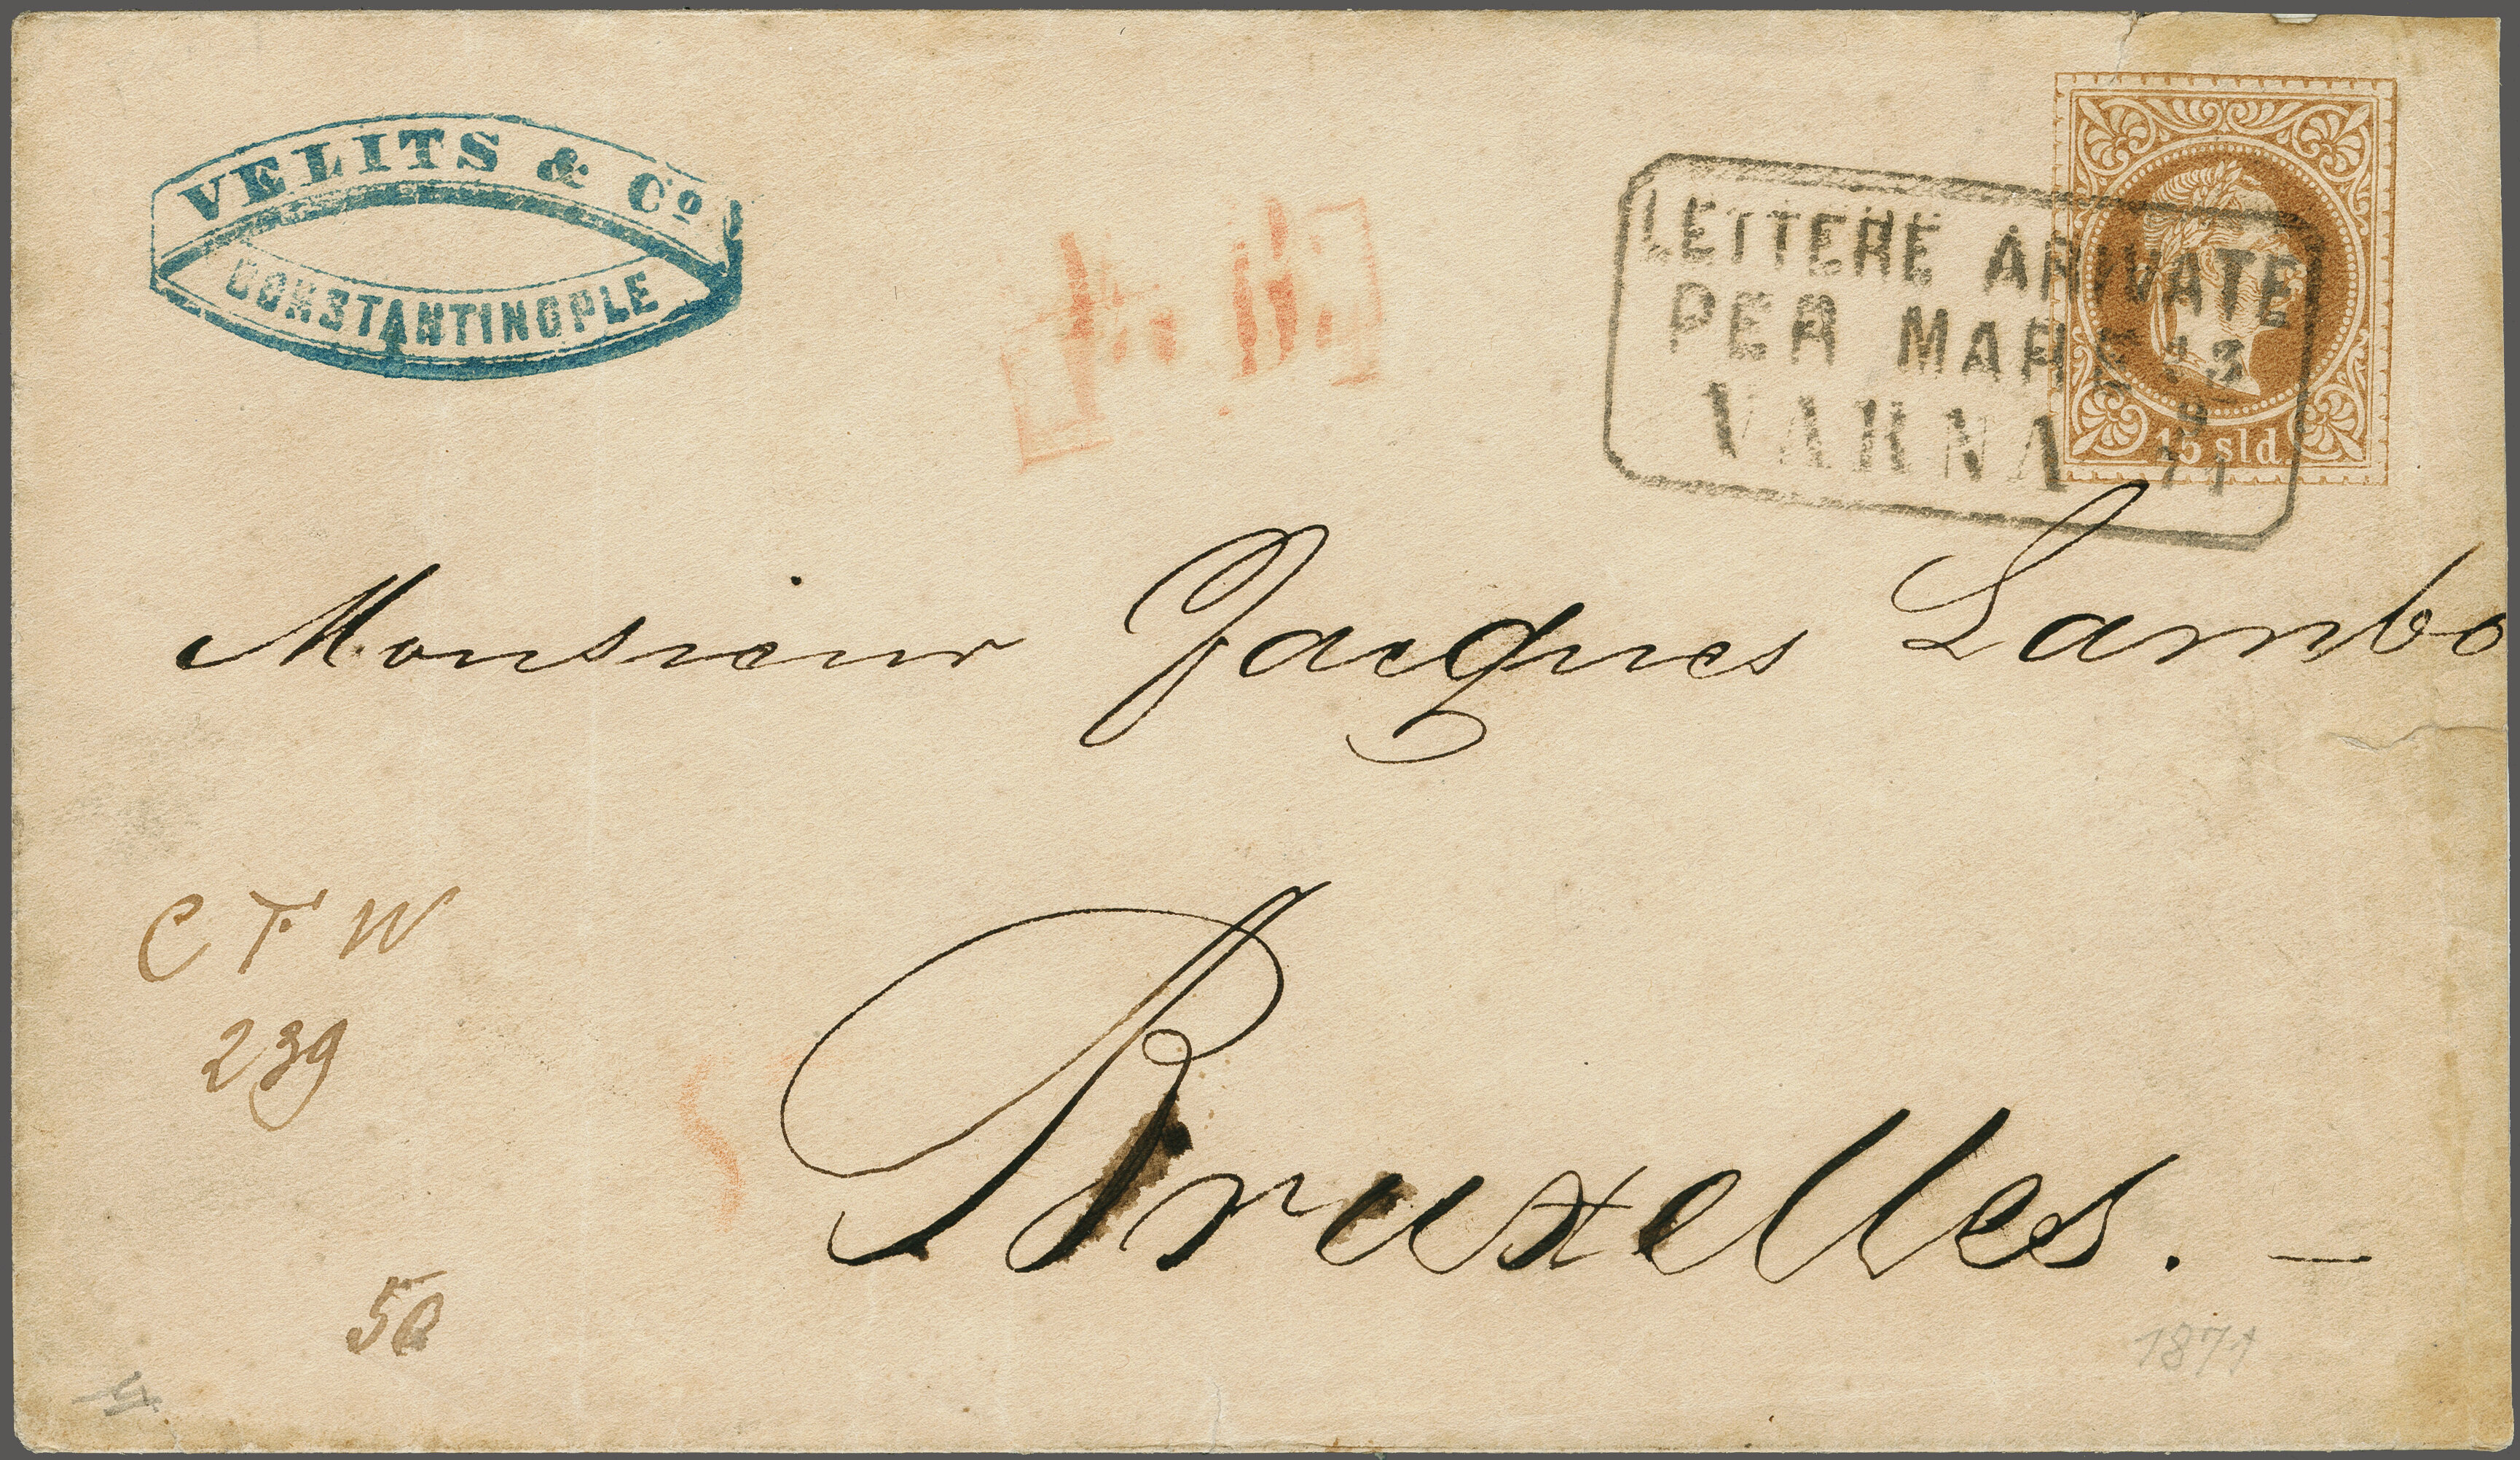 VELITS & Co
CONSTANTINOPLE
LETTERE ARIVATE
PER MARE 13
VARNA 9
71
15 sld.
Monsieur Jacques Lambo
Bruxelles. —
C F W
239
50
1871